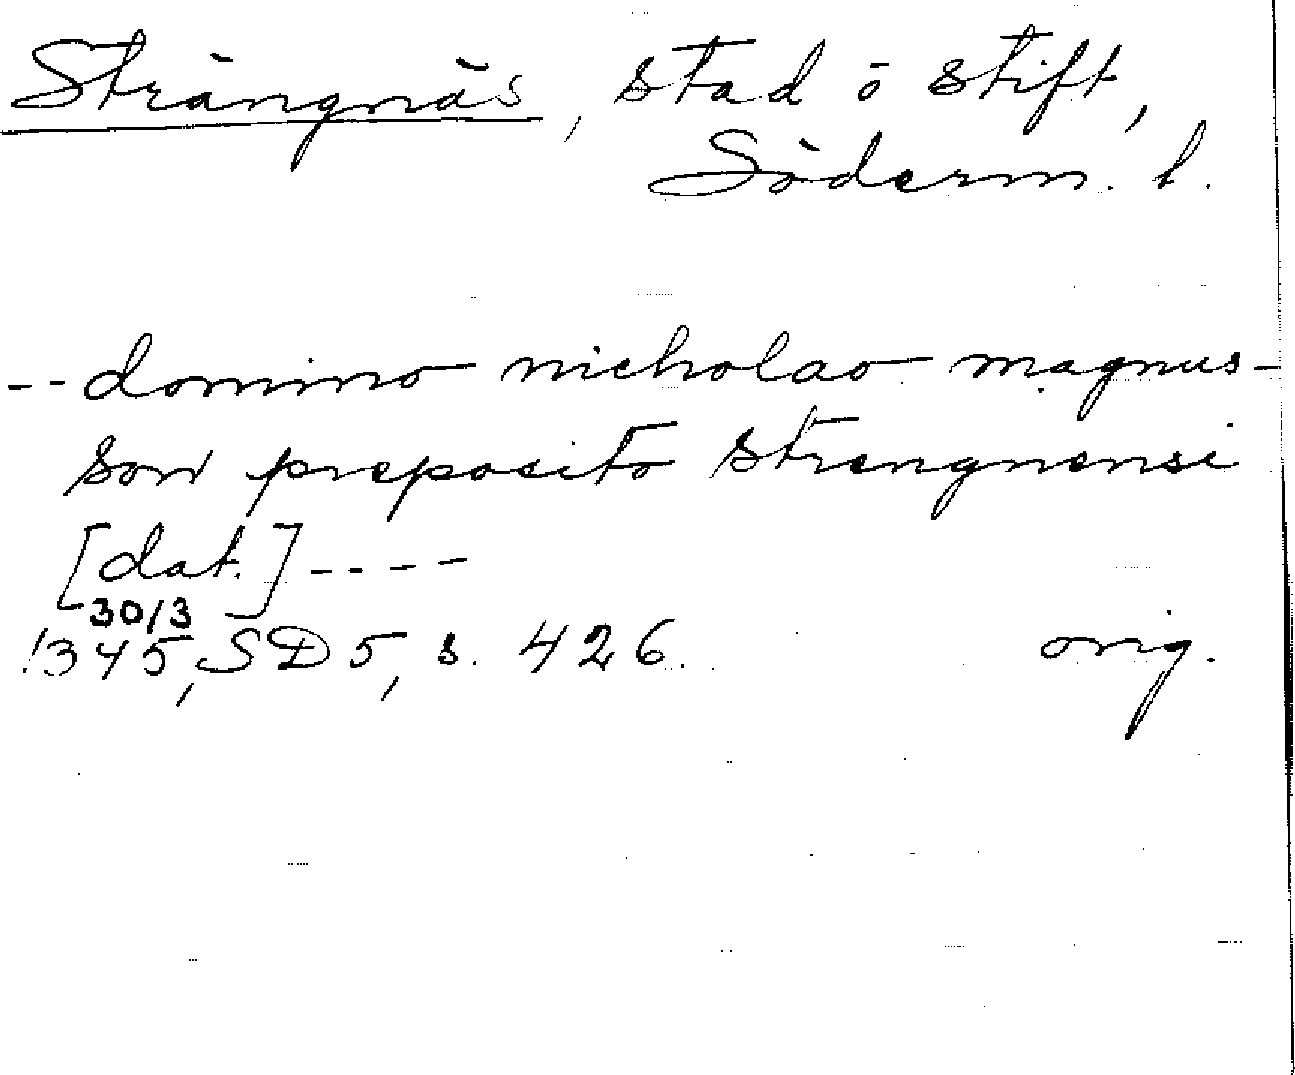 Strängnäs, stad o stift,
Söderm. l.
-- domino nicholao magnus-
son preposito strengnensi
[dat.] ----
30/3
1345, SD 5, s. 426. orig.